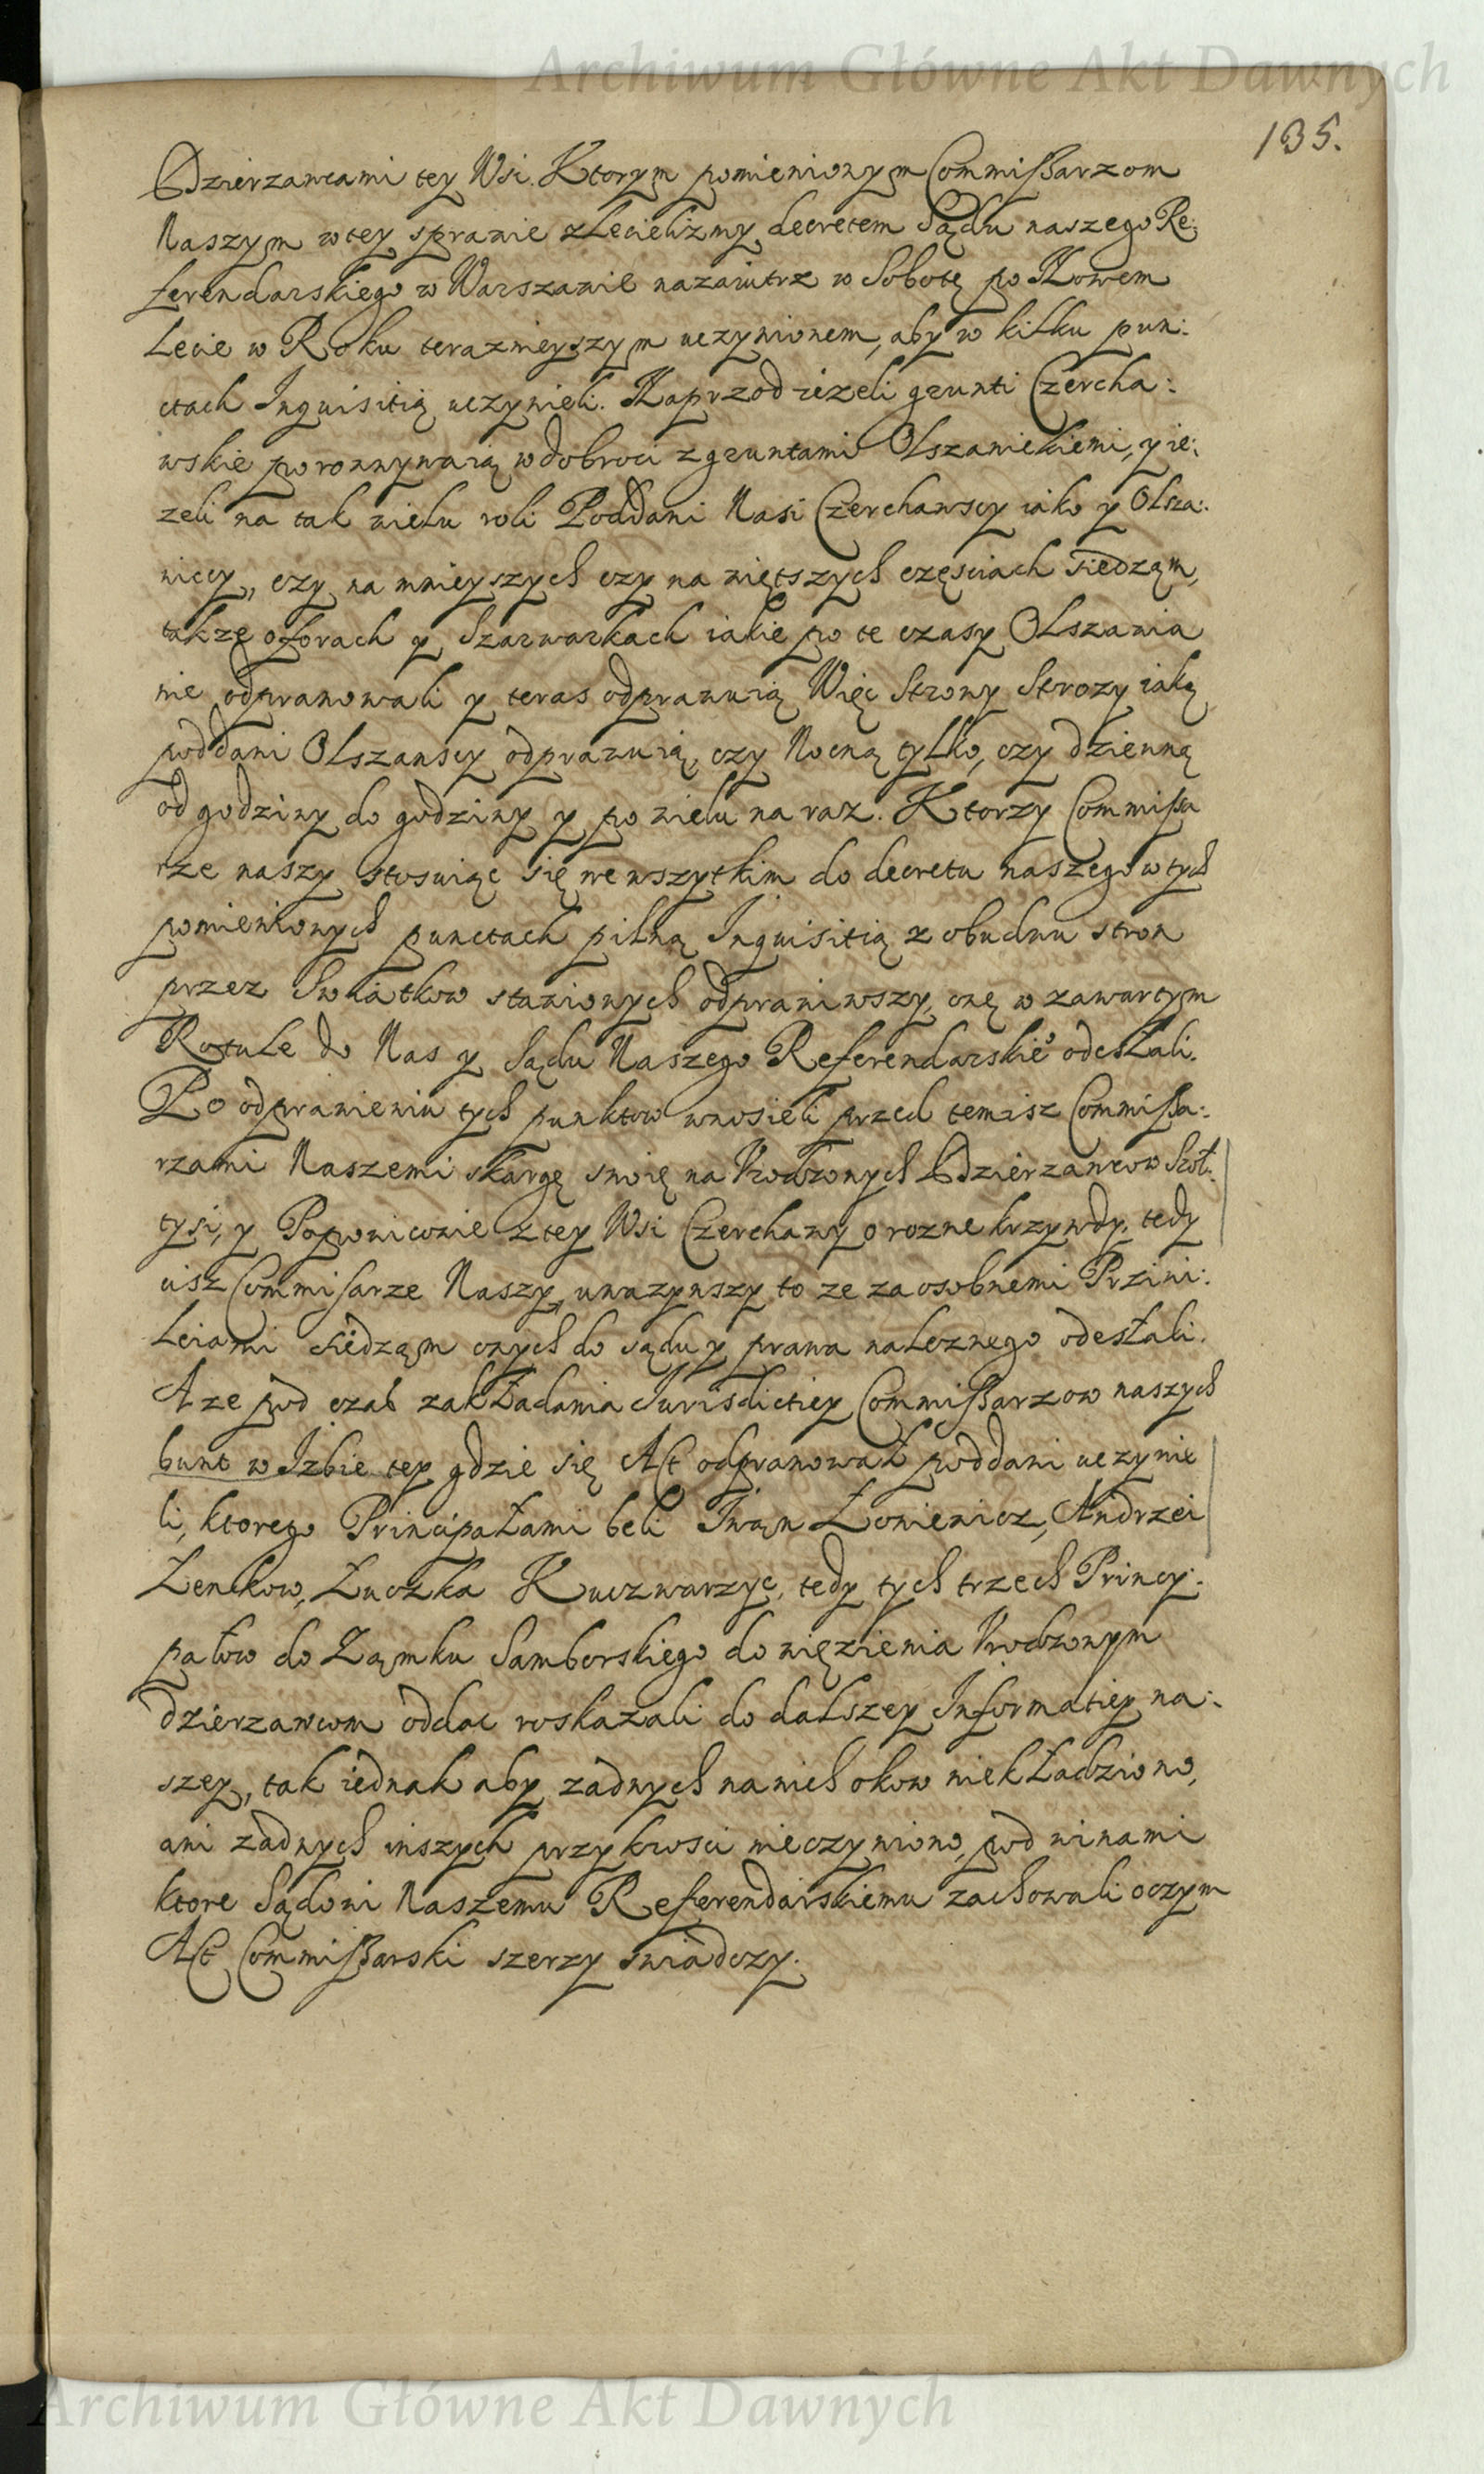 Archiwum Główne Akt Dawnych
135.
Dzierzawcami tey Wsi. Ktorym pomienionym Commissarzom
Naszym w tey sprawie zlecielizmy, decretem Sądu naszego Re:
ferendarskiego w Warszawie nazaiutrz w Sobotę po Nowem
Lecie w Roku teraznieyszym uczynionem, aby w kilku pun:
ctach Inquisitią uczynieli. Naprzod iezeli grunti Czercha:
wskie porownywaią w dobroci z gruntami Olszanickiemi, y ie:
zeli na tak wielu roli Poddani Nasi Czerchawscy iako y Olsza:
niccy, czy na mnieyszych czy na więtszych częsciach siedząm,
takze oforach y Szarwarkach iakie po te czasy Olszania
nie odprawowali y teras odprawuią Więc Strony Strozy iaką
poddani Olszanscy odprawuią, czy Nocną tylko, czy dzienną
od godziny do godziny y po wielu na raz. Ktorzy Commissa
rze naszy stosuiąc się we wszytkim do decretu naszego w tych
pomienionych punctach pilną Inquisitią z obudwu stron
przez Swiatkow stawionych odprawiwszy, onę w zawartym
Rotule do Nas y Sądu Naszego Referendarskie° odesłali.
Po odprawieniu tych punktow wnosieli przed temisz Commissa:
rzami Naszemi skargę swoię na Urodzonych Dzierzawcow Szoł:
tysi, y Popowicowie z tey Wsi Czerchawy o rozne krzywdy. tedy
cisz Commisarze Naszy, uwazywszy to ze za osobnemi Prziwi:
leiami siedząm onych do sądu y prawa naleznego odesłali.
A ze pod czas zakładania Iurisdictiey Commissarzow naszych
bunt w Izbie tey gdzie się Act odprawował poddani uczynie
li, ktorego Principałami beli Iwan Łoniewicz, Andrzei
Łenkow, Łuczka Kuczwarzyc, tedy tych trzech Princy:
pałow do Zamku Samborskiego do więzienia Urodzonym
dzierzawcom oddac roskazali do dalszey Informatiey na:
szey, tak iednak aby zadnych na nich okow niekładziono,
ani zadnych inszych przykrosci nieczyniono, pod winami
ktore Sądowi Naszemu Referendarskiemu zachowali oczym
Act Commissarski szerzy swiadczy.
Archiwum Główne Akt Dawnych